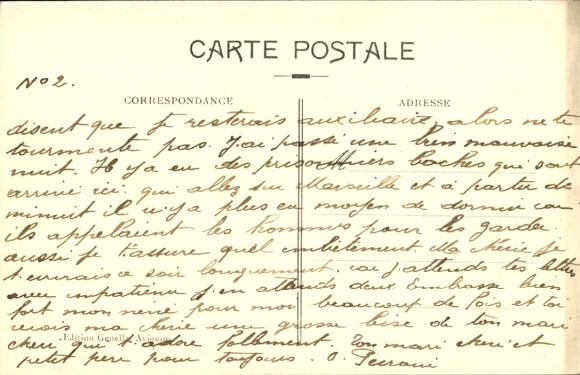 CARTE POSTALE
No 2.
CORRESPONDANCE
ADRESSE
disent que je resterais auxiliaire, alors ne te
tourmente pas. J'ai passé une bien mauvaise
nuit. Il y a eu des prisonniers boches qui sont
arrivé ici, qui allez sur Marseille et à partir de
minuit il n'y a plus eu moyen de dormir car
ils appelaient les hommes pour les garder
aussi je t'assure quel Ma cherie je
t'ecrirais ce soir longuement. car j'attends tes lettres
avec impatience j'en attends deux Embrasse bien
fort mon nené pour moi beaucoup de fois et toi
recois ma cherie une grosse bise de ton mari
cheri qui t'adore follement Ton mari cheri et
petit pere pour toujours. O.
Edition Genelly Avignon